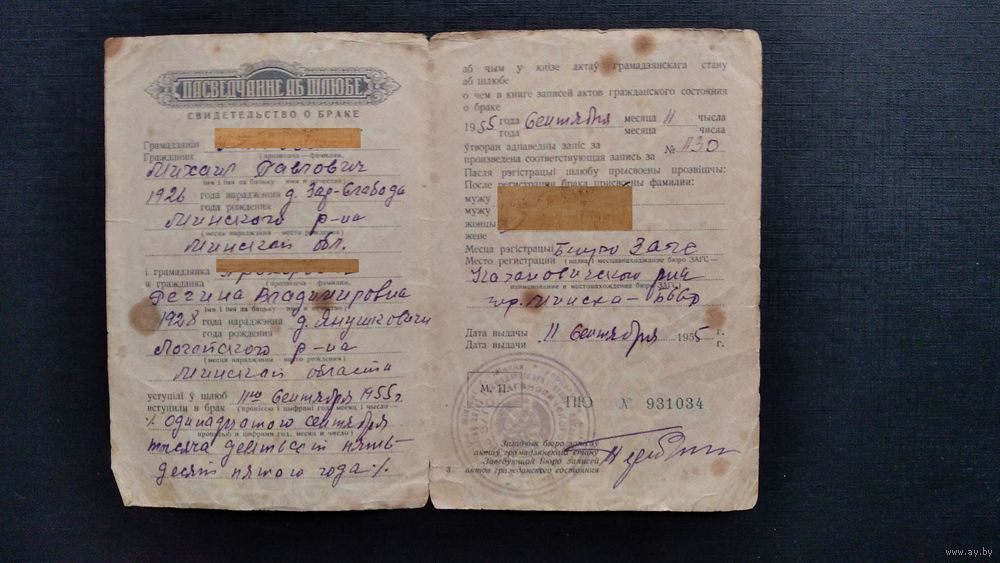 ПАСВЕДЧАННЕ АБ ШЛЮБЕ
СВИДЕТЕЛЬСТВО О БРАКЕ
Грамадзянін
Гражданин
(прозвішча — фамилия,
Михаил Павлович
імя і імя па бацьку имя и отчество)
1926 года нараджэння д. Зар-Слабода
года рождения
Минского р-на
(месца нараджэння — место рождения)
Минской обл.
і грамадзянка
и гражданка
(прозвішча — фамилия,
Регина Владимировна
імя і імя па бацьку имя и отчество)
1928 года нараджэння д. Янушковичи
года рождения
Логойского р-на
(месца нараджэння место рождения)
Минской области
уступілі ў шлюб 11го сентября 1955 г.
вступили в брак (прописью и цифрами год, месяц и число)
одинадцатого сентября
прописью и цифрами год, месяц и число)
тысяча девятьсот пять-
десят пятого года
аб чым у кнізе актаў грамадзянскага стану
аб шлюбе
о чем в книге записей актов гражданского состояния
о браке
1955 года сентября месяца 11 чысла
года месяца числа
ўтворан адпаведны запіс за № 1130
произведена соответствующая запись за
Пасля рэгістрацыі шлюбу прысвоены прозвішчы:
После регистрации брака присвоены фамилии:
мужу
мужу
жонцы
жене
Месца рэгістрацыі Бюро Загс
Место регистрации (назва і местанаходжанне бюро ЗАГС —
Кагановичского р-на
наименование и местонахождение бюро ЗАГС)
гор. Минска — БССР
Дата выдачы 11 сентября 1955 г.
Дата выдачи г.
М. П.
ПЮ № 931034
Загадчык бюро запісаў
актаў грамадзянскага стану
Заведующий Бюро записей
актов гражданского состояния
3
www.ay.by